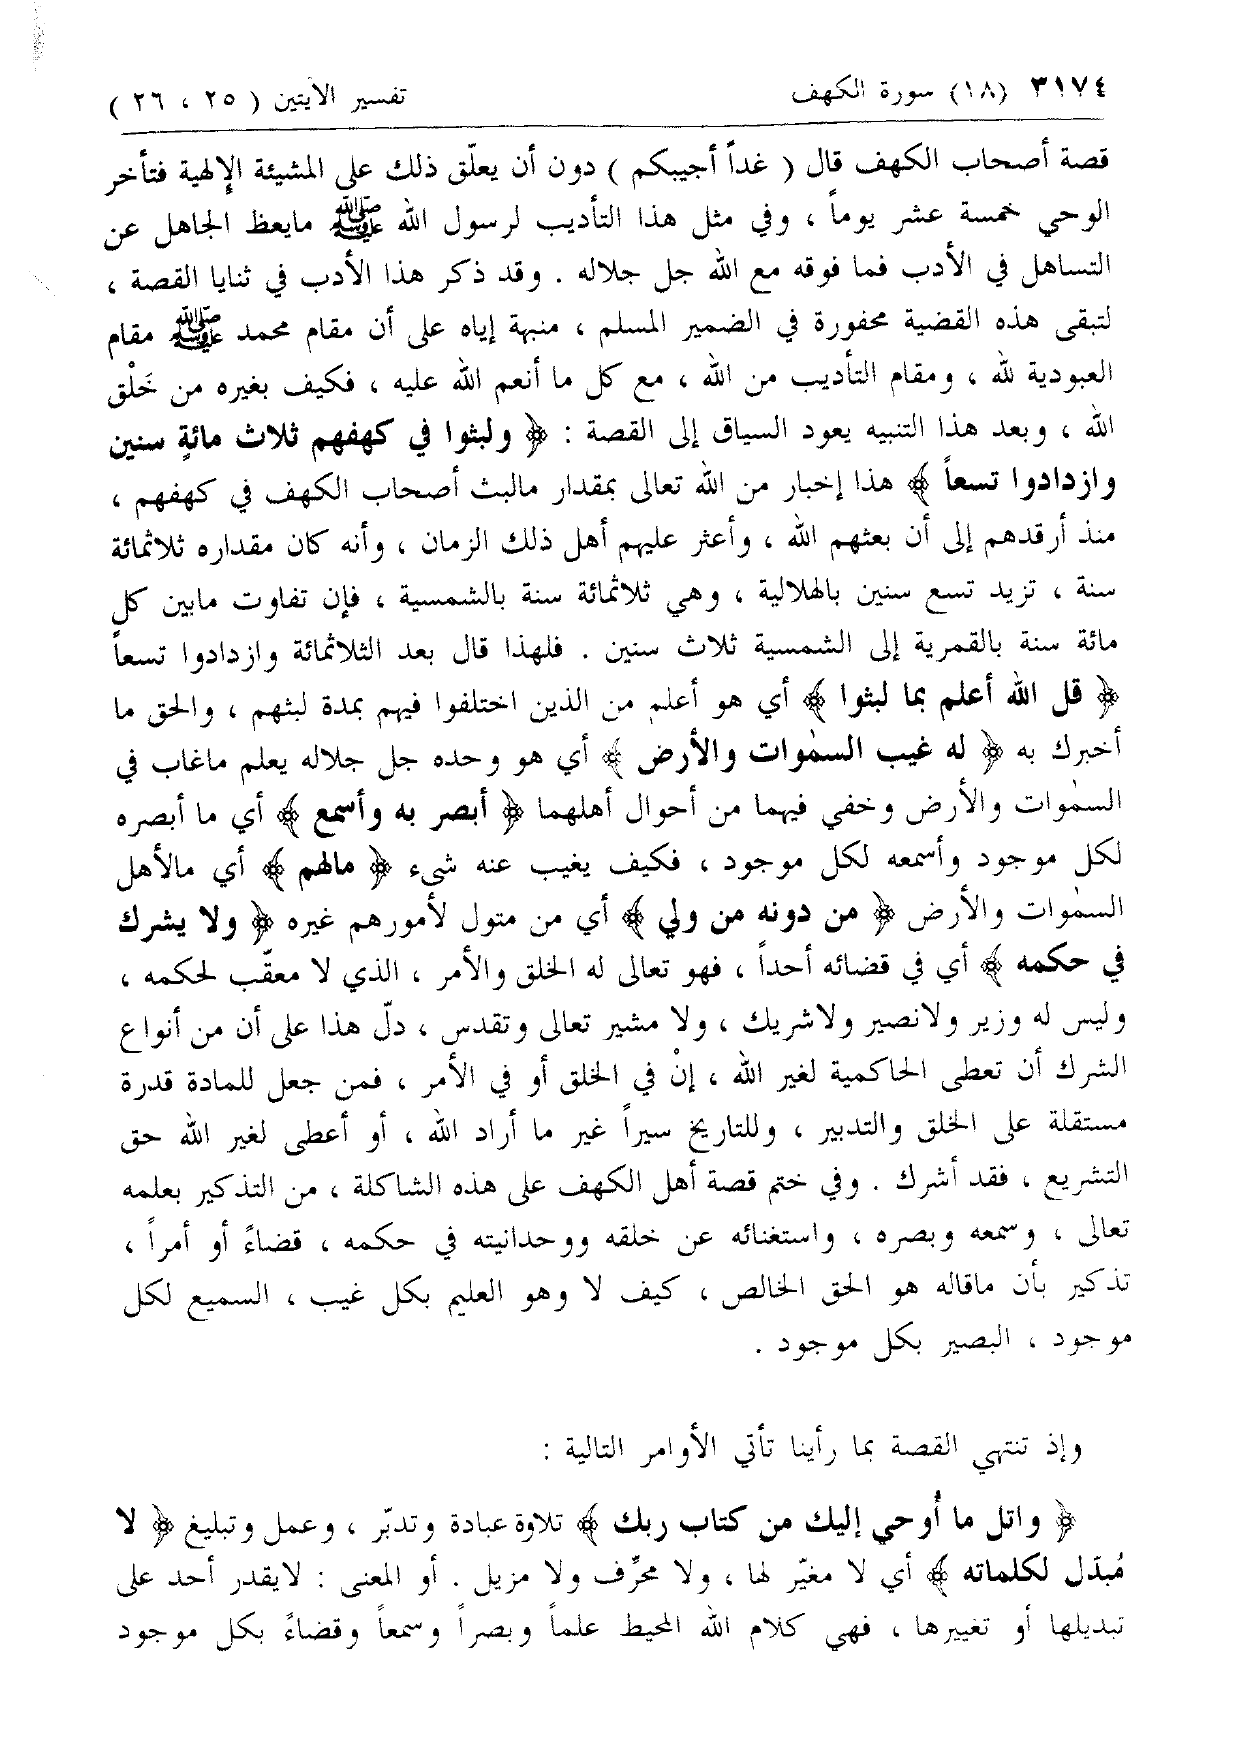 ٣١٧٤ (١٨) سورة الكهف تفسير الآيتين ( ٢٥ ، ٢٦ )
قصة أصحاب الكهف قال ( غداً أجيبكم ) دون أن يعلّق ذلك على المشيئة الإلهية فتأخر
الوحي خمسة عشر يوماً ، وفي مثل هذا التأديب لرسول الله ﷺ مايعظ الجاهل عن
التساهل في الأدب فما فوقه مع الله جل جلاله . وقد ذكر هذا الأدب في ثنايا القصة ،
لتبقى هذه القضية محفورة في الضمير المسلم ، منبهة إياه على أن مقام محمد ﷺ مقام
العبودية لله ، ومقام التأديب من الله ، مع كل ما أنعم الله عليه ، فكيف بغيره من خَلْق
الله ، وبعد هذا التنبيه يعود السياق إلى القصة : ﴿ ولبثوا في كهفهم ثلاث مائةٍ سنين
وازدادوا تسعاً ﴾ هذا إخبار من الله تعالى بمقدار مالبث أصحاب الكهف في كهفهم ،
منذ أرقدهم إلى أن بعثهم الله ، وأعثر عليهم أهل ذلك الزمان ، وأنه كان مقداره ثلاثمائة
سنة ، تزيد تسع سنين بالهلالية ، وهي ثلاثمائة سنة بالشمسية ، فإن تفاوت مابين كل
مائة سنة بالقمرية إلى الشمسية ثلاث سنين . فلهذا قال بعد الثلاثمائة وازدادوا تسعاً
﴿ قل الله أعلم بما لبثوا ﴾ أي هو أعلم من الذين اختلفوا فيهم بمدة لبثهم ، والحق ما
أخبرك به ﴿ له غيب السمٰوات والأرض ﴾ أي هو وحده جل جلاله يعلم ماغاب في
السمٰوات والأرض وخفي فيهما من أحوال أهلهما ﴿ أبصر به وأسمع ﴾ أي ما أبصره
لكل موجود وأسمعه لكل موجود ، فكيف يغيب عنه شىء ﴿ مالهم ﴾ أي مالأهل
السمٰوات والأرض ﴿ من دونه من ولي ﴾ أي من متول لأمورهم غيره ﴿ ولا يشرك
في حكمه ﴾ أي في قضائه أحداً ، فهو تعالى له الخلق والأمر ، الذي لا معقّب لحكمه ،
وليس له وزير ولانصير ولاشريك ، ولا مشير تعالى وتقدس ، دلّ هذا على أن من أنواع
الشرك أن تعطى الحاكمية لغير الله ، إنْ في الخلق أو في الأمر ، فمن جعل للمادة قدرة
مستقلة على الخلق والتدبير ، وللتاريخ سيراً غير ما أراد الله ، أو أعطى لغير الله حق
التشريع ، فقد أشرك . وفي ختم قصة أهل الكهف على هذه الشاكلة ، من التذكير بعلمه
تعالى ، وسمعه وبصره ، واستغنائه عن خلقه ووحدانيته في حكمه ، قضاءً أو أمراً ،
تذكير بأن ماقاله هو الحق الخالص ، كيف لا وهو العليم بكل غيب ، السميع لكل
موجود ، البصير بكل موجود .
وإذ تنتهي القصة بما رأينا تأتي الأوامر التالية :
﴿ واتل ما أُوحي إليك من كتاب ربك ﴾ تلاوة عبادة وتدبّر ، وعمل وتبليغ ﴿ لا
مُبدّل لكلماته ﴾ أي لا مغيّر لها ، ولا محرِّف ولا مزيل . أو المعنى : لايقدر أحد على
تبديلها أو تغييرها ، فهي كلام الله المحيط علماً وبصراً وسمعاً وقضاءً بكل موجود